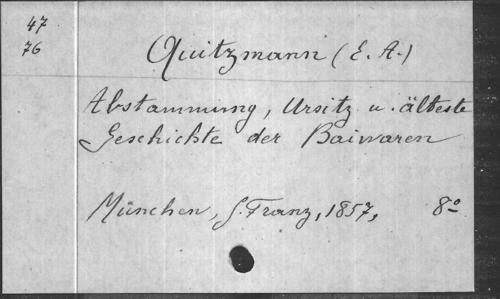 47
76
Quitzmann (E. A.)
Abstammung, Ursitz u. älteste
Geschichte der Baiwaren
München, G. Franz, 1857, 8°